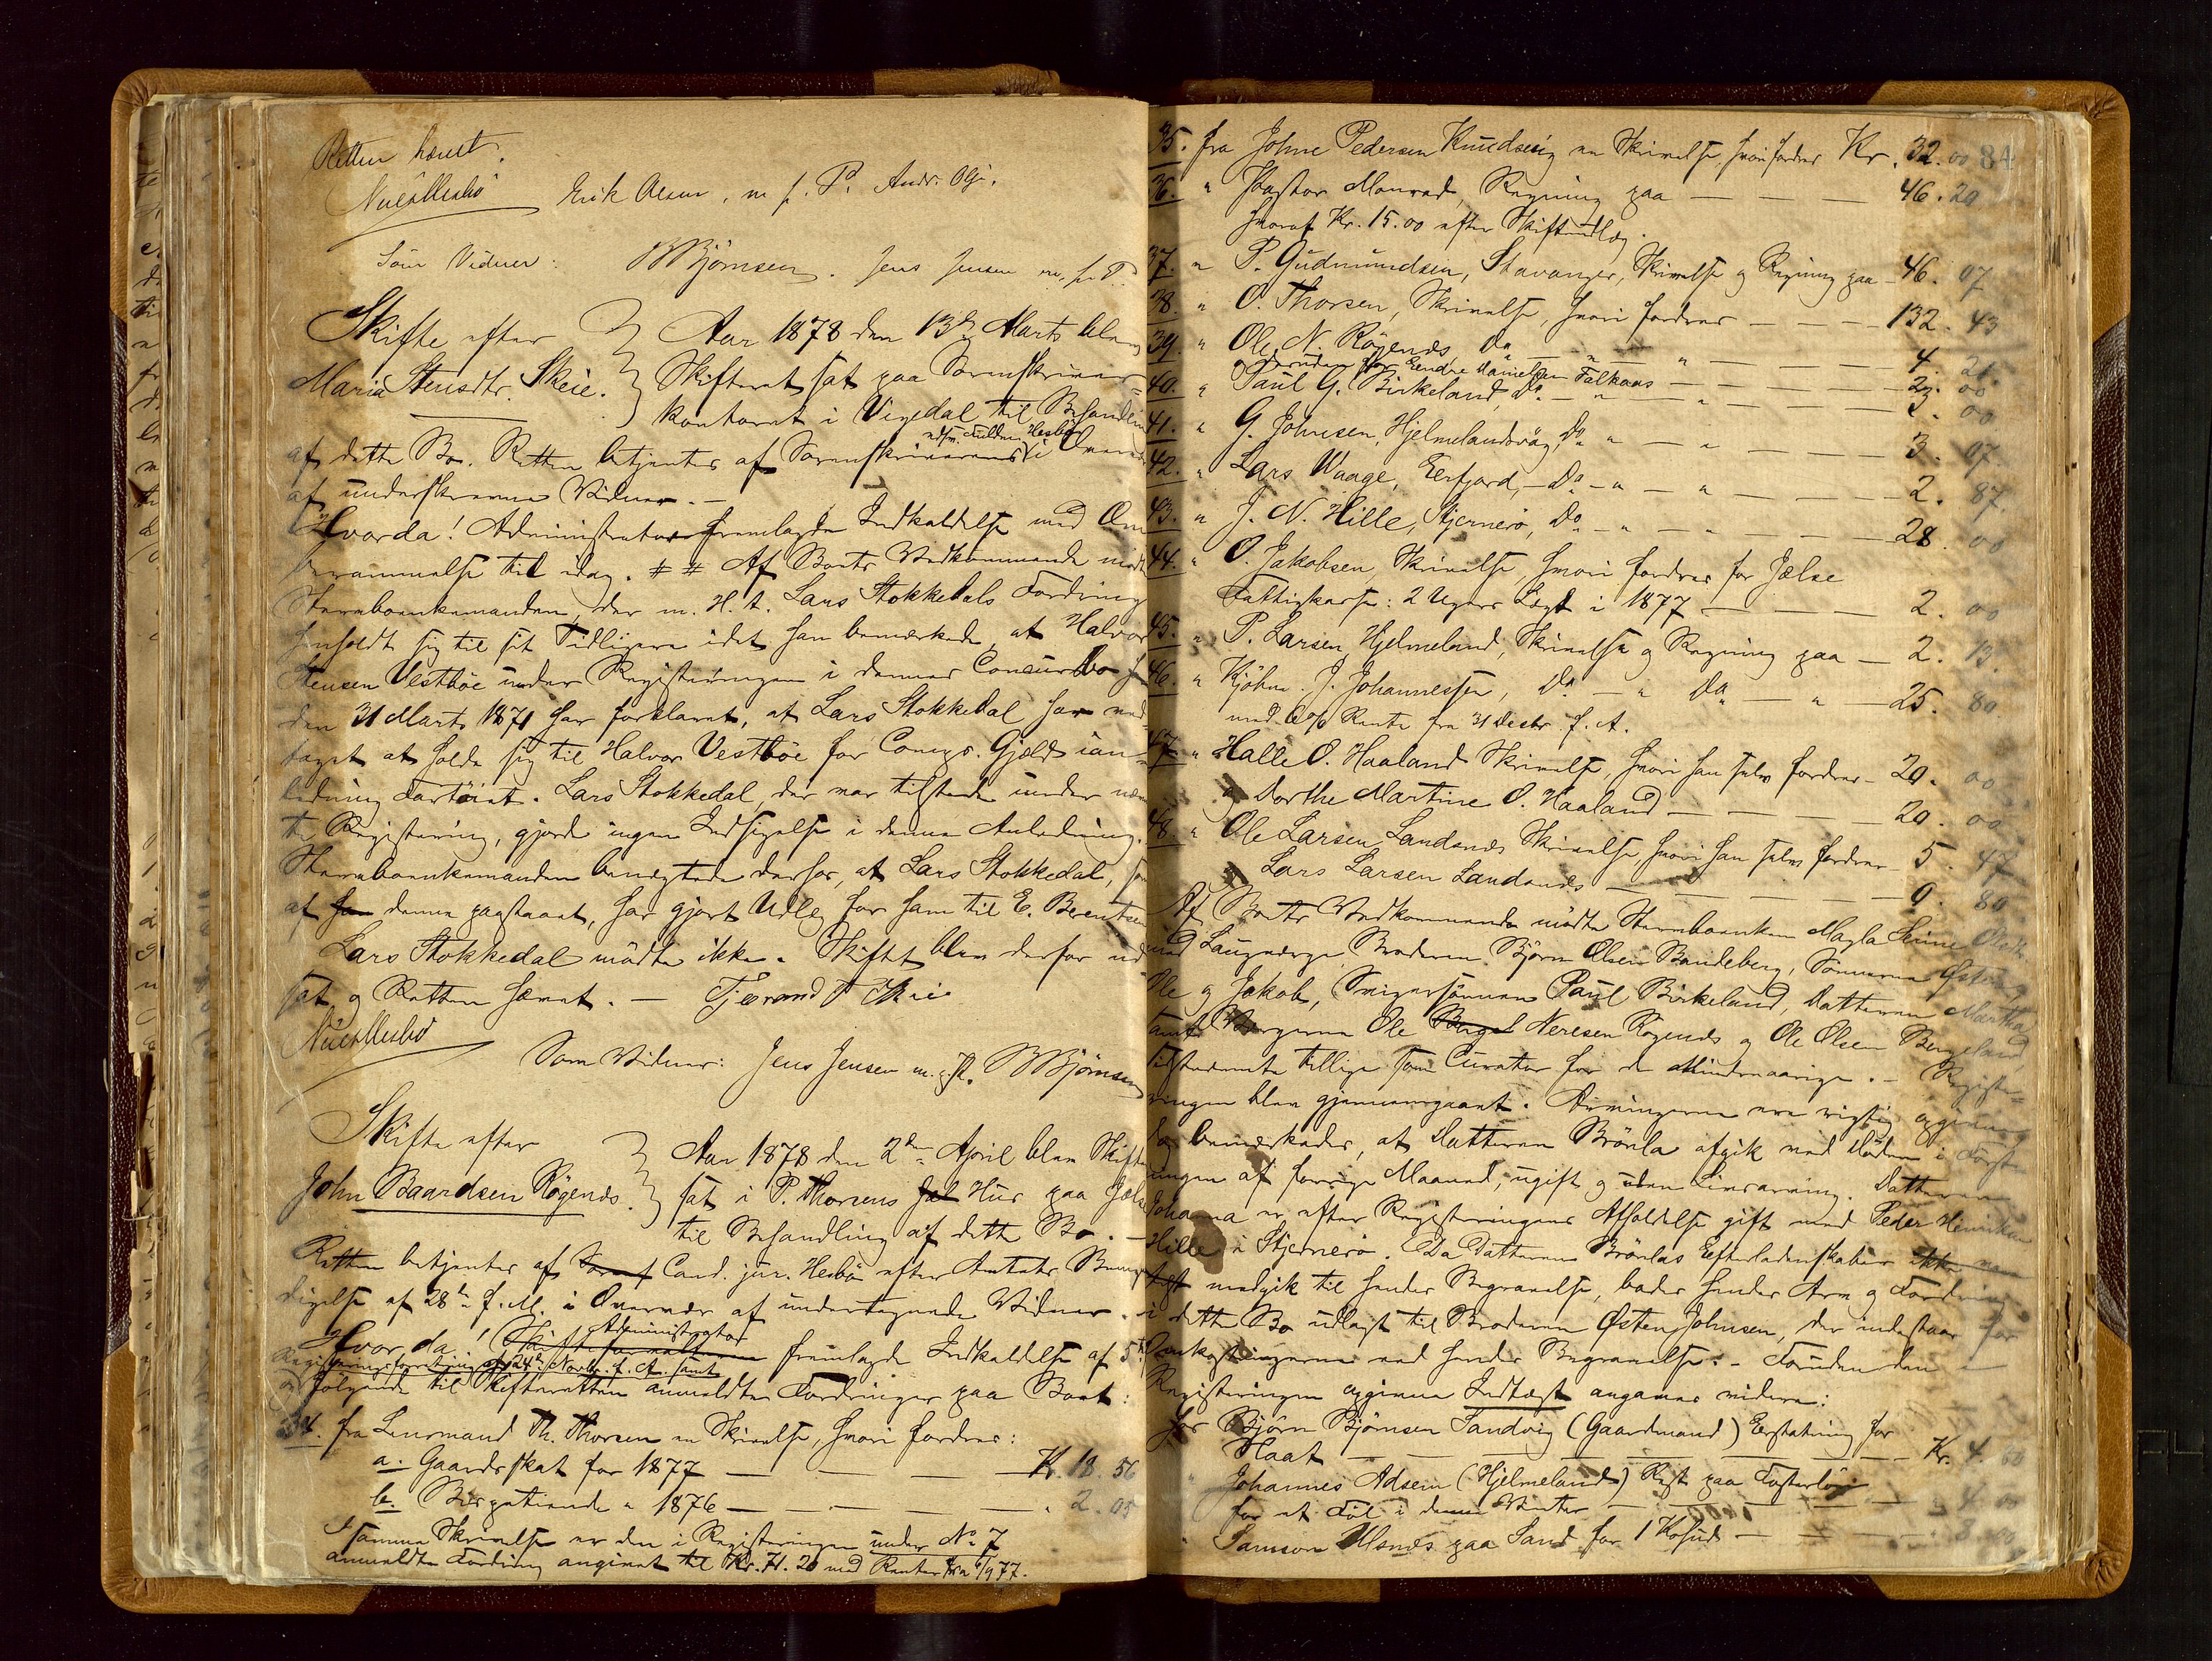 Retten hævet.
Erik Olsen, m. f. P. Andr. Olss.
Som Vidner: BBjørnsen. Jens Jensen m. f. P.
Skifte efter
Maria Stensdtr. Skeie.
Aar 1878 den 13de Marts blev
Skifteret sat paa Sorenskriver-
kontoret i Vigedal til Behandling
af dette Bo. Retten betjentes af Sorenskriverens
edsv. Fuldm. Hesbø
i Overvær
af underskrevne Vidner. —
Hvorda! Administrator fremlagde Indkaldelse med Om-
berammelse til idag. ## Af Boets Vedkommende mødte
Stervboenkemanden, der m. H. t. Lars Stokkedals Fordring
henholdt sig til sit Tidligere idet han bemærkede, at Halvor
Stensen Vestbøe under Registeringen i dennes Concursbo
den 31 Marts 1871 har forklaret, at Lars Stokkedal har ved-
taget at holde sig til Halvor Vestbøe for Comps. Gjæld i an-
ledning Fartøiet. Lars Stokkedal, der var tilstede under nævn-
te Registering, gjorde ingen Indsigelse i denne Anledning.
Stervboenkemanden benægtede derfor, at Lars Stokkedal,
af denne paastaaet, har gjort Udlæg for ham til E. Berentsen
Lars Stokkedal mødte ikke. Skiftet blev derfor ud-
sat og Retten hævet. — Tjerand T Skeie
Som Vidner: Jens Jensen m. f. P. BBjørnsen
Skifte efter
John Baardsen Røgenes.
Aar 1878 den 2den April blev Skifteret
sat i P. Thorsens Hus paa Jælse
til Behandling af dette Bo. —
Retten betjentes af Cand. jur. Hesbø efter Amtets Bemyn-
digelse af 28de f. M. i Overvær af undertegnede Vidner.
Hvor da! Administrator fremlagde Indkaldelse af 5te
Registeringsforretning af 24de Novbr. f. A. samt
følgende til Skifteretten anmeldte Fordringer paa Boet:
34. fra Lensmand Th. Thorsen en Skrivelse, hvori fordres:
a. Gaardsskat for 1877 — — — Kr. 18. 56
b. " 1876 — — — " 2. 05
I samme Skrivelse er den i Registeringen under No 7
anmeldte Fordring angivet til Kr. 71. 20 med Renter fra 1/9 77.
84
35. fra Johne Pedersen Knudsvig en Skrivelse, hvori fordres Kr. 32. 00
36. " Pastor Monrad, Regning paa — — — 46. 20
hvoraf Kr. 15.00 efter Skifteudlæg.
37. " P. Gudmundsen, Stavanger, Skrivelse og Regning paa — 46. 07
38. " O. Thorsen, Skrivelse, hvori fordres — — — 132. 43
39. " Ole N. Røgenes, Do — " — " — 4. 21
og desuden for Eendre Danielsen Falkaas — — — 23. 00
40. " Paul G. Birkeland, Do — " — " — 00
41. " G. Johnsen, Hjelmelandsvåg, Do " — " — 3. 07.
42. " Lars Waage, Eerfjord, — Do — " — " — 2. 87
43. " J. N. Hille, Stjernerø, Do — " — " — 28. 00
44. " O. Jakobsen, Skrivelse, hvori fordres for Jælse
Fattigkasse: 2 Ugers Lægd i 1877 — — — 2. 00
45. " P. Larsen, Hjelmeland, Skrivelse og Regning paa — 2. 13.
46. " Kjøbm. J. Johannessen, Do — " Do — " — 25. 80
med 6 % Rente fra 31 Decbr f. A.
47. " Halle O. Haaland Skrivelse, hvori han selv fordrer — 20. 00
og Dorthe Martine O. Haaland — — — 20. 00
48. " Ole Larsen Landsnes Skrivelse, hvori han selv fordrer 5. 47
og Lars Larsen Landsnes — — — 9. 80
Af Boets Vedkommende mødte Stervboenken Magla Serine Olsdtr.
med Laugværge, Broderen Bjørn Olsen Bandeberg, Sønnerne Østen,
Ole og Jakob, Svigersønnen Paul Birkeland, Datteren Martha
samt Værgerne Ole Neresen Røgenes og Ole Olsen Bergeland,
sidstnævnte tillige som Curator for de Mindreaarige. — Registe-
ringen blev gjennemgaaet. Arvingerne ere rigtig opgivne,
dog bemærkedes, at Datteren Brønla afgik ved Døden i Første
ningen af forrige Maaned, ugift og uden Livsarving. Datteren
Johanna er efter Registeringens Afholdelse gift med Peder Henriksen
Hille i Stjernerø. Da Datteren Brønlas Efterladenskaber
medgik til hendes Begravelse, bades hendes Arv og Fordring
i dette Bo udlagt til Broderen Østen Johnsen, der indestaar for
Omkostningerne ved hendes Begravelse. — Foruden den i
Registeringen opgivne Indtægt angaves videre:
hos Bjørn Bjørnsen Sandvig (Gaardmand) Erstatning for
Haat — — — Kr. 4. 60
" Johannes Adsem (Hjelmeland) Rest paa Fosterløn
for et Føl i denne Vinter — — — " 4. 00
" Samson Ulsnes paa Sand for 1 Kohud — — — " 8. 00